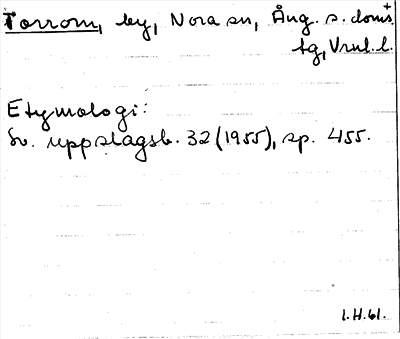 Torrom, by, Nora sn, Ång. s. doms.
tg, Vrnl. l.
Etymologi:
Sv. uppslagsb. 32 (1955), sp. 455.
I.H.61.